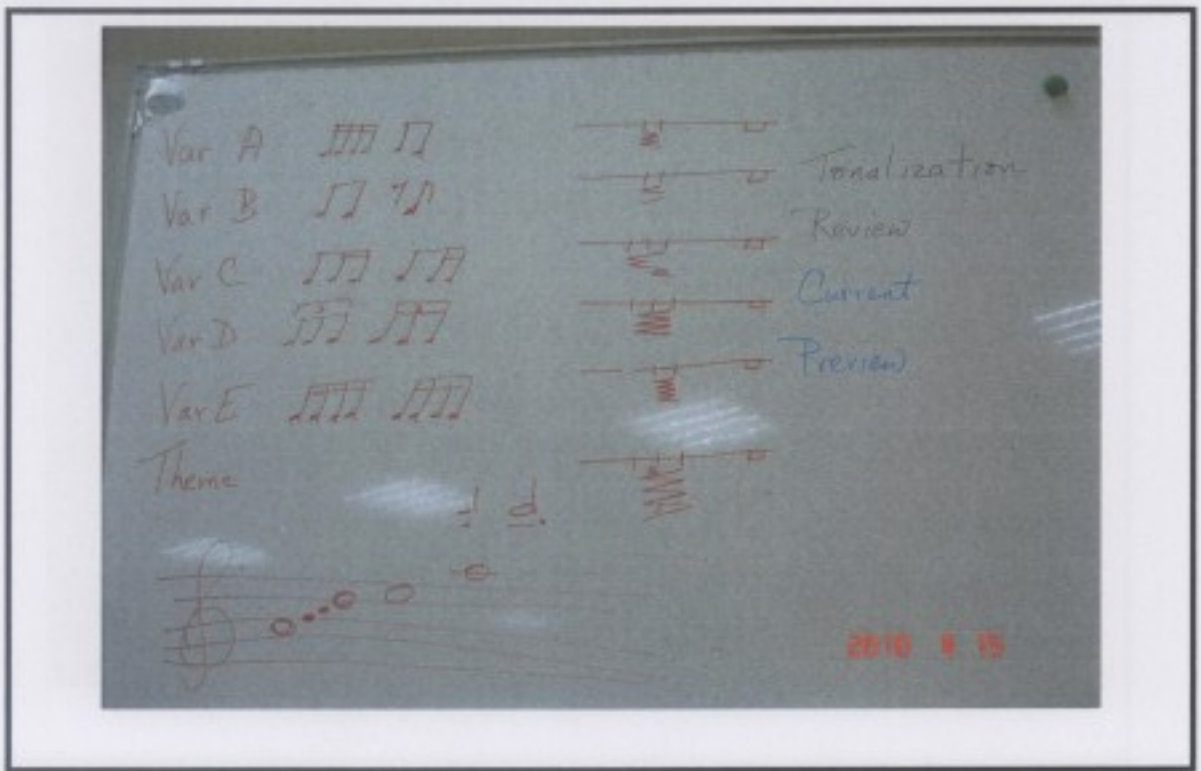 Var A
Var B
Var C
Var D
Var E
Theme
Tonalization
Review
Current
Preview